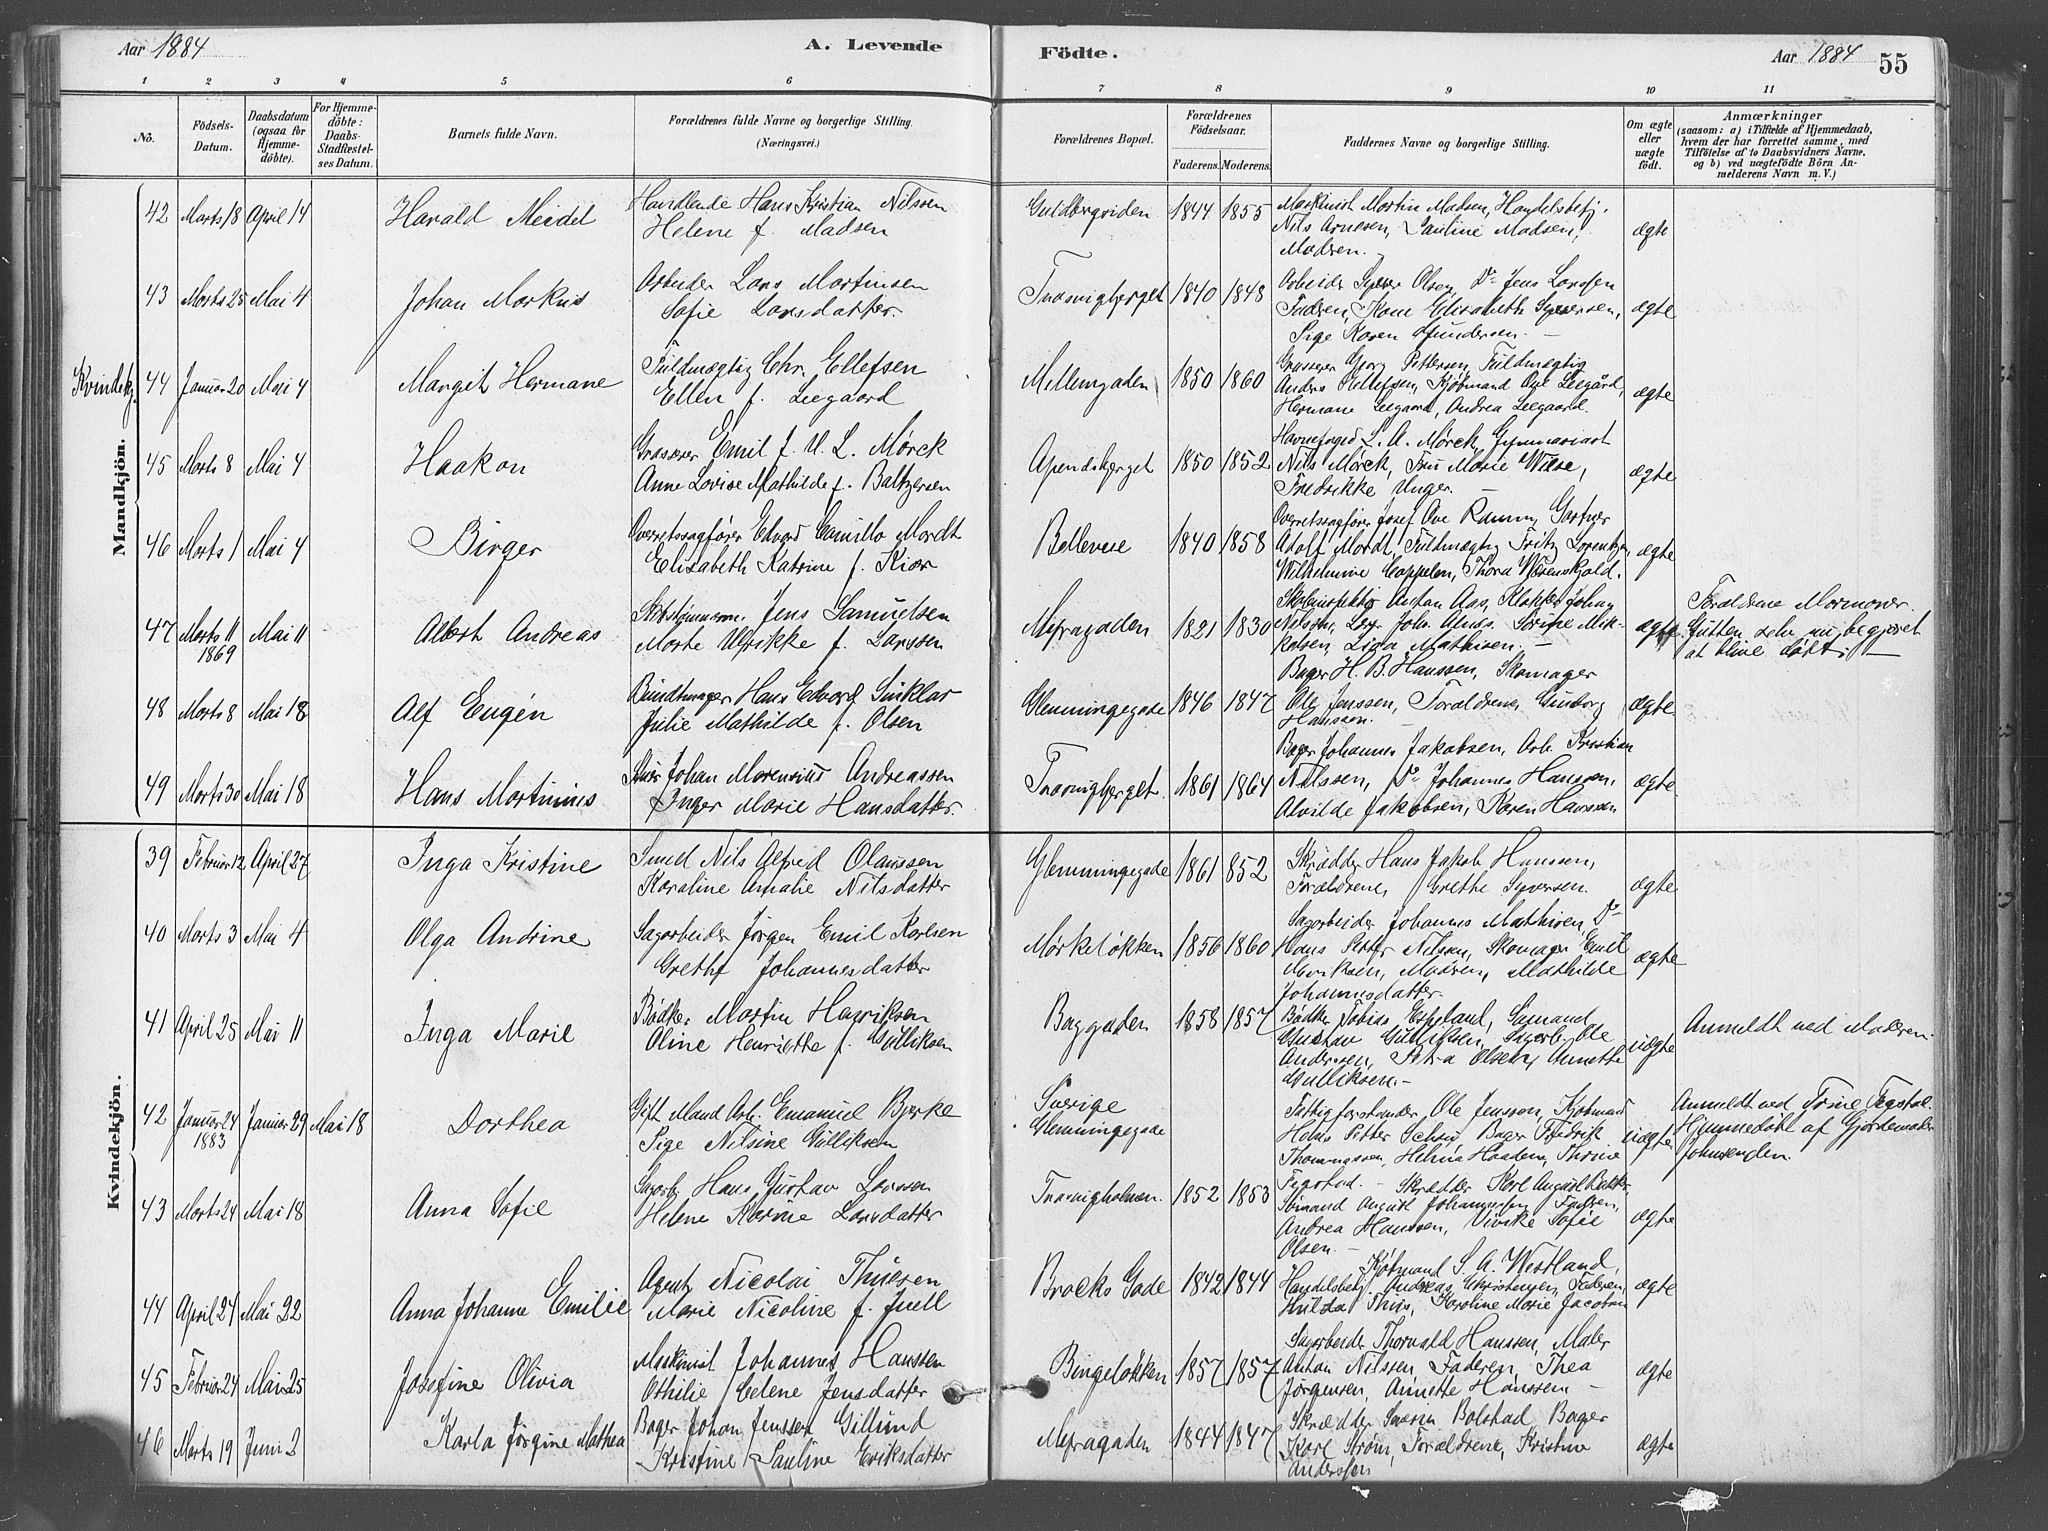 Aar 1884
A. Levende
Födte.
Aar 1884
55
1 2 3 4 5 6 7 8 9 10 11
No.
Födsels-Datum.
Daabsdatum (ogsaa for Hjemme-döbte).
For Hjemme-döbte: Daabs-Stadfæstel-ses Datum.
Barnets fulde Navn.
Forældrenes fulde Navne og borgerlige Stilling. (Næringsvei.)
Forældrenes Bopæl.
Forældrenes Födselsaar.
Faderens. Moderens.
Faddernes Navne og borgerlige Stilling.
Om ægte eller uægte födt.
Anmærkninger (saasom: a) i Tilfælde af Hjemmedaab, hvem der har forrettet samme, med Tilföielse af to Daabsvidners Navne, og b) ved uægtefödte Börn An-melderens Navn m. V.)
Mandkjön.
42 Marts 18 April 14 Harald Meidel
Handlende Hans Kristian Nilssen
Helene f. Madsen
Guldbergsiden 1844 1855
Maskinist Martin Madsen, Handelsbetj.
Nils Arnesen, Pauline Madsen,
Moderen.
ægte
43 Marts 25 Mai 4 Johan Markus
Arbeider Lars Martinsen
Sofie Larsdatter.
Traravigbjerget 1840 1848
Arbeider Syver Olsen, Do Jens Larssen
Faderen, Kone Elisabeth Syversen,
Pige Karen Gundersen.
ægte
Kvindekj. 44 Januar 20 Mai 4 Margit Hermane
Fuldmægtig Chr. Ellefsen
Ellen f. Leegaard
Mellemgaden 1850 1860
Grosserer Georg Pettersen, Fuldmægtig
Andrs Ellefsen, Kjøbmand Ove Leegård,
Hermane Leegaard, Andrea Leegaard.
ægte
45 Marts 8 Mai 4 Haakon
Grosserer Emil f. V. L. Mørck
Anne Lovise Mathilde f. Baltzersen
Apendsbjerget 1850 1852
Havnefoged L. A. Mørck, Gymnasiast
Nils Mørck, Fru Marie Wiese,
Fredrikke Unger.
ægte
46 Marts 1 Mai 4 Birger
Overretssagfører Edvard Camillo Mordt
Elisabeth Katrine f. Kiær
Bellevue 1840 1858
Overretssagfører Josef Ove Ramm, Gartner
Adolf Mordt, Fuldmægtig Fritz Lorentzen
Wilhelmine Cappelen, Thora Wesenskjold.
ægte
47 Marts 11 1869 Mai 11 Albert Andreas
Skibstømmerm. Jens Samuelsen
Marte Ulrikke f. Larssen
Mefragaden 1821 1830
Skoleinspektør Anton Aas, Klokker Johan
Nelson, Lær. Joh. Amss. Sørine Mik-
kelsen, Lisa Mathisen.
ægte
Forældrene Mormoner.
Gutten selv nu begjæret
at blive døbt.
48 Marts 8 Mai 18 Alf Eugén
Bundtmager Hans Edvard Sinklar
Julie Mathilde f. Olsen
Glemmingegade 1846 1847
Bager H. B. Hanssen, Skomager
Ole Jenssen, Forældrene, Gunborg
Hanssen.
ægte
49 Marts 30 Mai 18 Hans Martinius
Johan Morensius Andreassen
Inger Marie Hansdatter.
Traravigbjerget 1861 1864
Bager Johannes Jakobsen, Arb. Kristian
Nilssen, Do Johannes Hanssen,
Alvilde Jakobsen, Karen Hanssen
ægte
Kvindekjön.
39 Februar 12 April 27 Inga Kristine
Smed Nils Alfred Olaussen
Karoline Amalie Nilsdatter
Glemmingegade 1861 852
Skrædder Hans Jakob Hanssen,
Forældrene, Grethe Syversen.
ægte
40 Marts 3 Mai 4 Olga Andrine
Sagarbeider Jørgen Emil Karlsen
Grethe Johannesdatter
Mørkeløkken 1856 1860
Sagarbeider Johannes Mathisen, Do
Hans Petter Nilsen, Skomager Emil
Moriksen, Moderen, Mathilde
Johannesdatter.
ægte
41 April 25 Mai 11 Inga Marie
Bødker Martin Henriksen
Oline Henriette f. Gulliksen
Baggaden 1858 1857
Bødker Tobias Espeland, Sømand
Gustav Gulliksen, Sagarb. Ole
Anderssen, Petra Olsen, Annette
Gulliksen.
uægte
Anmeldt ved Moderen.
42 Januar 24 1883 Januar 29 Mai 18 Dorthea
Gift Mand Arb. Emanuel Bjerke
Pige Nilsine Gulliksen
Sverige
Glemmingegade
Fattigforstander Ole Jensson, Kjøbmand
Hans Petter Schou, Bager Fredrik
Thommassen, Helena Haaden, Thrine
Fegstad.
uægte
Anmeldt ved Trine Fegstad.
Hjemmedøbt af Gjordemoder
Johnsenden.
43 Marts 24 Mai 18 Anna Sofie
Sagarb. Hans Gustav Larssen
Helene Karine Larsdatter
Traravigholmen 1852 1853
Skrædder Karl August Rutter,
Sømand August Johannessen, Faderen,
Andrea Hanssen, Vivike Sofie
Olsen.
ægte
44 April 24 Mai 22 Anna Johanne Emilie
Agent Nicolai Thuesen
Marie Nicoline f. Juell
Brocks Gade 1842 1844
Kjøbmand S. A. Westland,
Handelsbetj. Andreas Christensen, Faderen,
Hulda Thiis, Karoline Marie Jacobsen
ægte
45 Februar 24 Mai 25 Josefine Olivia
Maskinist Johannes Hanssen
Othilie Celene Jensdatter
Bingeløkken 1857 1857
Sagarbeider Thorvald Hanssen, Maler
Anton Nilssen, Faderen, Thea
Jørgensen, Annette Hanssen
ægte
46 Marts 19 Juni 2 Karla Jørgine Mathea
Bager Johan Jenssen Gillund
Kristine Pauline Eriksdatter
Mefragaden 1844 1847
Skrædder Severin Bolstad, Bager
Karl Strøm, Forældrene, Kristine
Anderssen
ægte